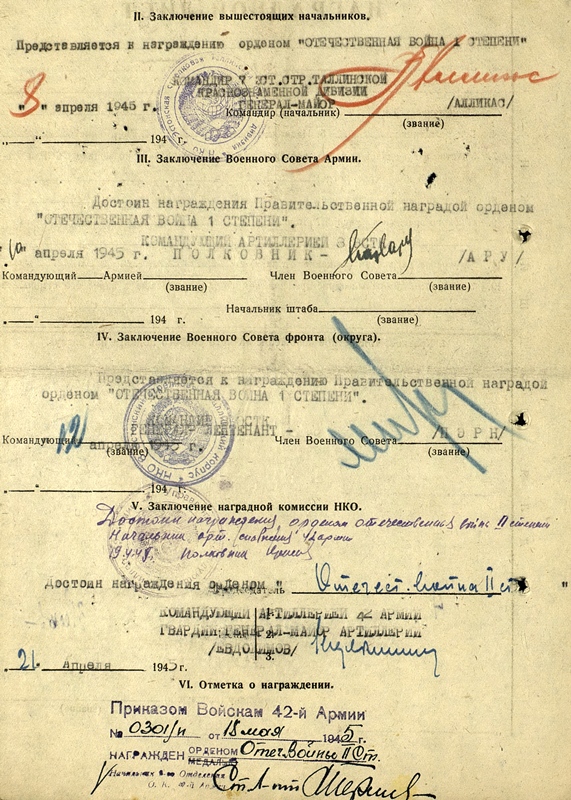 II. Заключение вышестоящих начальников.
Представляется к награждению орденом "ОТЕЧЕСТВЕННАЯ ВОЙНА 1 СТЕПЕНИ"
КОМАНДИР 7 ЭСТ.СТР.ТАЛЛИНСКОЙ
КРАСНОЗНАМЕННОЙ ДИВИЗИИ
"8" апреля 1945 г. ГЕНЕРАЛ-МАЙОР /АЛЛИКАС/
Командир (начальник)
(звание)
"—" 194 г.
III. Заключение Военного Совета Армии.
Достоин награждения Правительственной наградой орденом
"ОТЕЧЕСТВЕННАЯ ВОЙНА 1 СТЕПЕНИ".
КОМАНДУЮЩИЙ АРТИЛЛЕРИЕЙ 8 ЭСТК
"10" апреля 1945 г. ПОЛКОВНИК - /АРУ/
Командующий Армией Член Военного Совета
(звание) (звание)
Начальник штаба
"—" 194 г. (звание)
IV. Заключение Военного Совета фронта (округа).
Представляется к награждению Правительственной наградой
орденом "ОТЕЧЕСТВЕННАЯ ВОЙНА 1 СТЕПЕНИ".
КОМАНДИР ЭСТК
ГЕНЕРАЛ-ЛЕЙТЕНАНТ - /ПЭРН/
Командующий Член Военного Совета
12 апреля 1945 г.
(звание) (звание)
"—" 194 г.
V. Заключение наградной комиссии НКО.
Достоин награждения орденом отечественная война II степени
Начальник арт. снабжения 42 армии
19.4.45. полковник
Достоин награждения орденом " Отечест. война II ст "
Председатель
КОМАНДУЮЩИЙ АРТИЛЛЕРИЕЙ 42 АРМИИ
ГВАРДИИ ГЕНЕРАЛ-МАЙОР АРТИЛЛЕРИИ
/ЕВДОКИМОВ/
1.
2.
3.
"21" апреля 1945 г.
VI. Отметка о награждении.
Приказом Войскам 42-й Армии
№ 0301/н от 15 мая 1945 г.
НАГРАЖДЕН ОРДЕНОМ Отеч Войны II Ст.
МЕДАЛЬЮ
Начальник 2-го Отделения
О. К. 42-й Армии